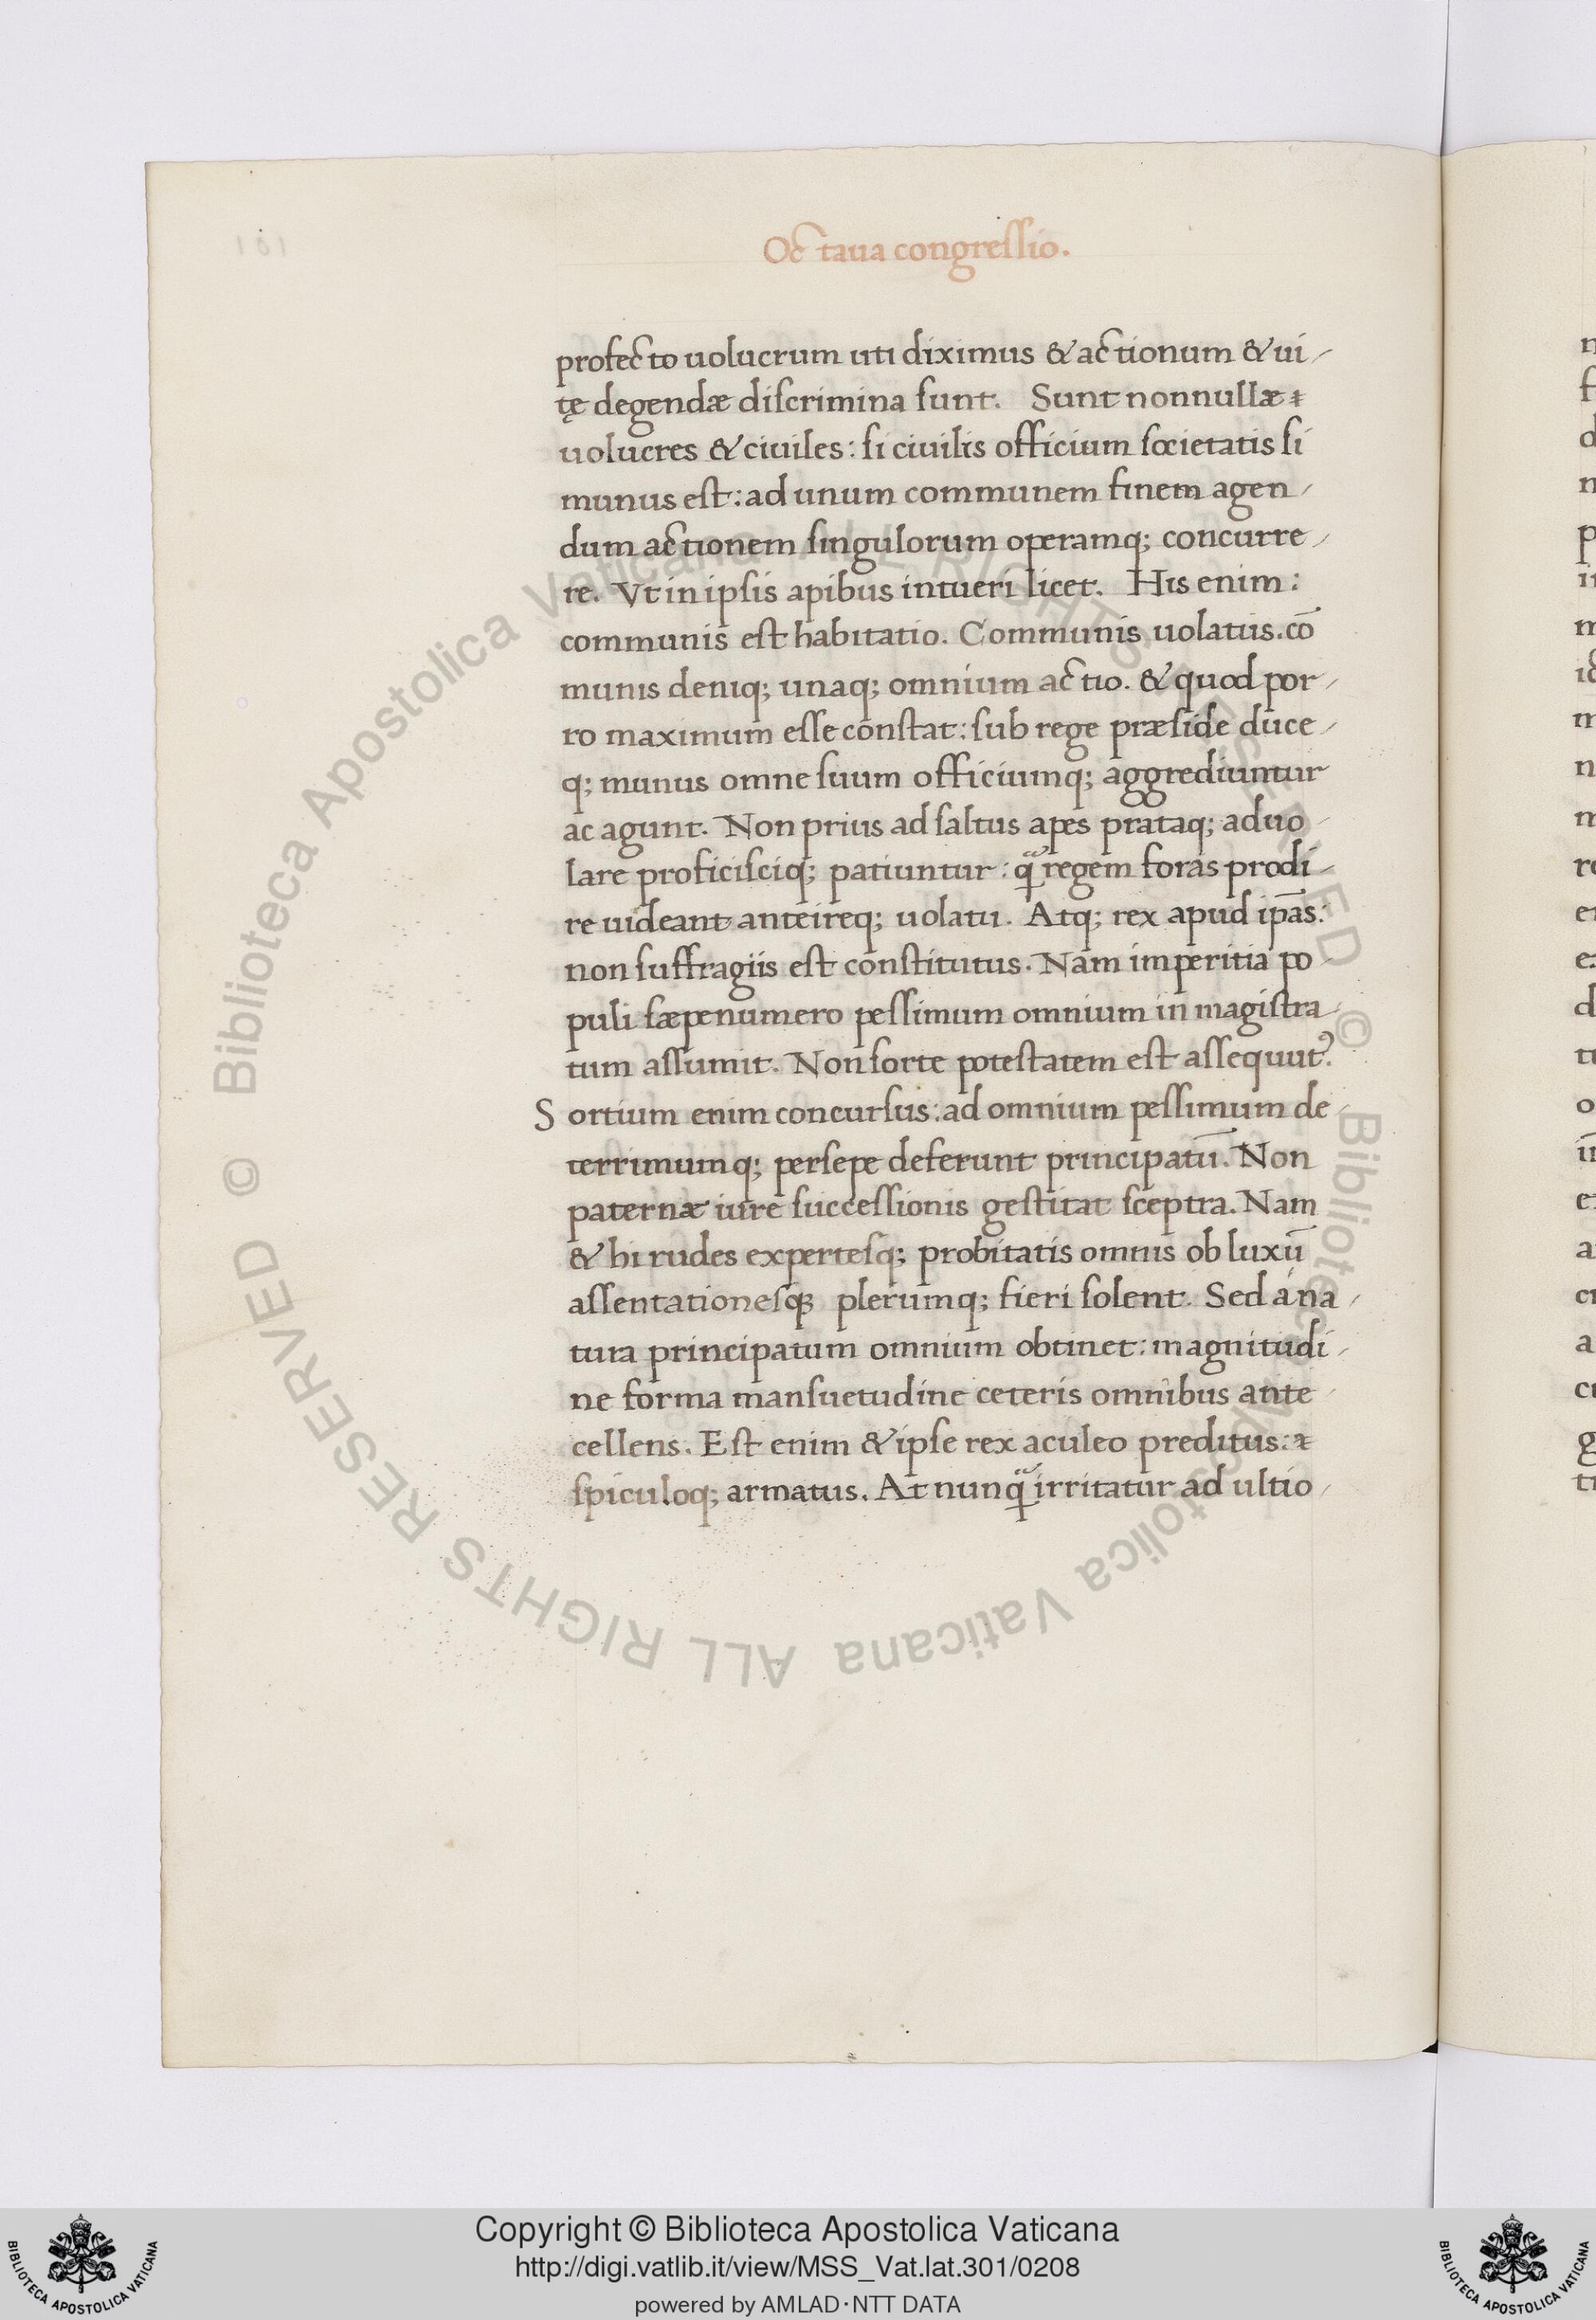 Octaua congressio.
profecto uolucrum uti diximus & actionum & ui-
tę degendæ discrimina sunt. Sunt nonnullæ
uolucres & ciuiles: si ciuilis officium societatis si
munus est: ad unum communem finem agen-
dum actionem singulorum operamq; concurre-
re. Vt in ipsis apibus intueri licet. His enim:
communis est habitatio. Communis uolatus. cō
munis deniq; unaq; omnium actio. & quod por-
ro maximum esse constat: sub rege præside duce-
q; munus omne suum officiumq; aggrediuntur
ac agunt. Non prius ad saltus apes prataq; aduo-
lare proficisciq; patiuntur: qᷓ regem foras prodi-
re uideant anteireq; uolatu. Atq; rex apud ip̄as:
non suffragiis est constitutus. Nam imperitia po-
puli sæpenumero pessimum omnium in magistra-
tum assumit. Non sorte potestatem est assequut᾿.
Sortium enim concursus: ad omnium pessimum de-
terrimumq; persepe deferunt principatū. Non
paternæ iure successionis gestitat sceptra. Nam
& hi rudes expertesq; probitatis omnis ob luxū
assentationesq; plerumq; fieri solent. Sed á na-
tura principatum omnium obtinet: magnitudi-
ne forma mansuetudine ceteris omnibus ante-
cellens. Est enim & ipse rex aculeo preditus:
spiculoq; armatus. At nunqᷓ irritatur ad ultio-
101
© Biblioteca Apostolica Vaticana ALL RIGHTS RESERVED © Biblioteca Apostolica Vaticana ALL RIGHTS RESERVED
Copyright © Biblioteca Apostolica Vaticana
http://digi.vatlib.it/view/MSS_Vat.lat.301/0208
powered by AMLAD·NTT DATA
BIBLIOTECA APOSTOLICA VATICANA
BIBLIOTECA APOSTOLICA VATICANA